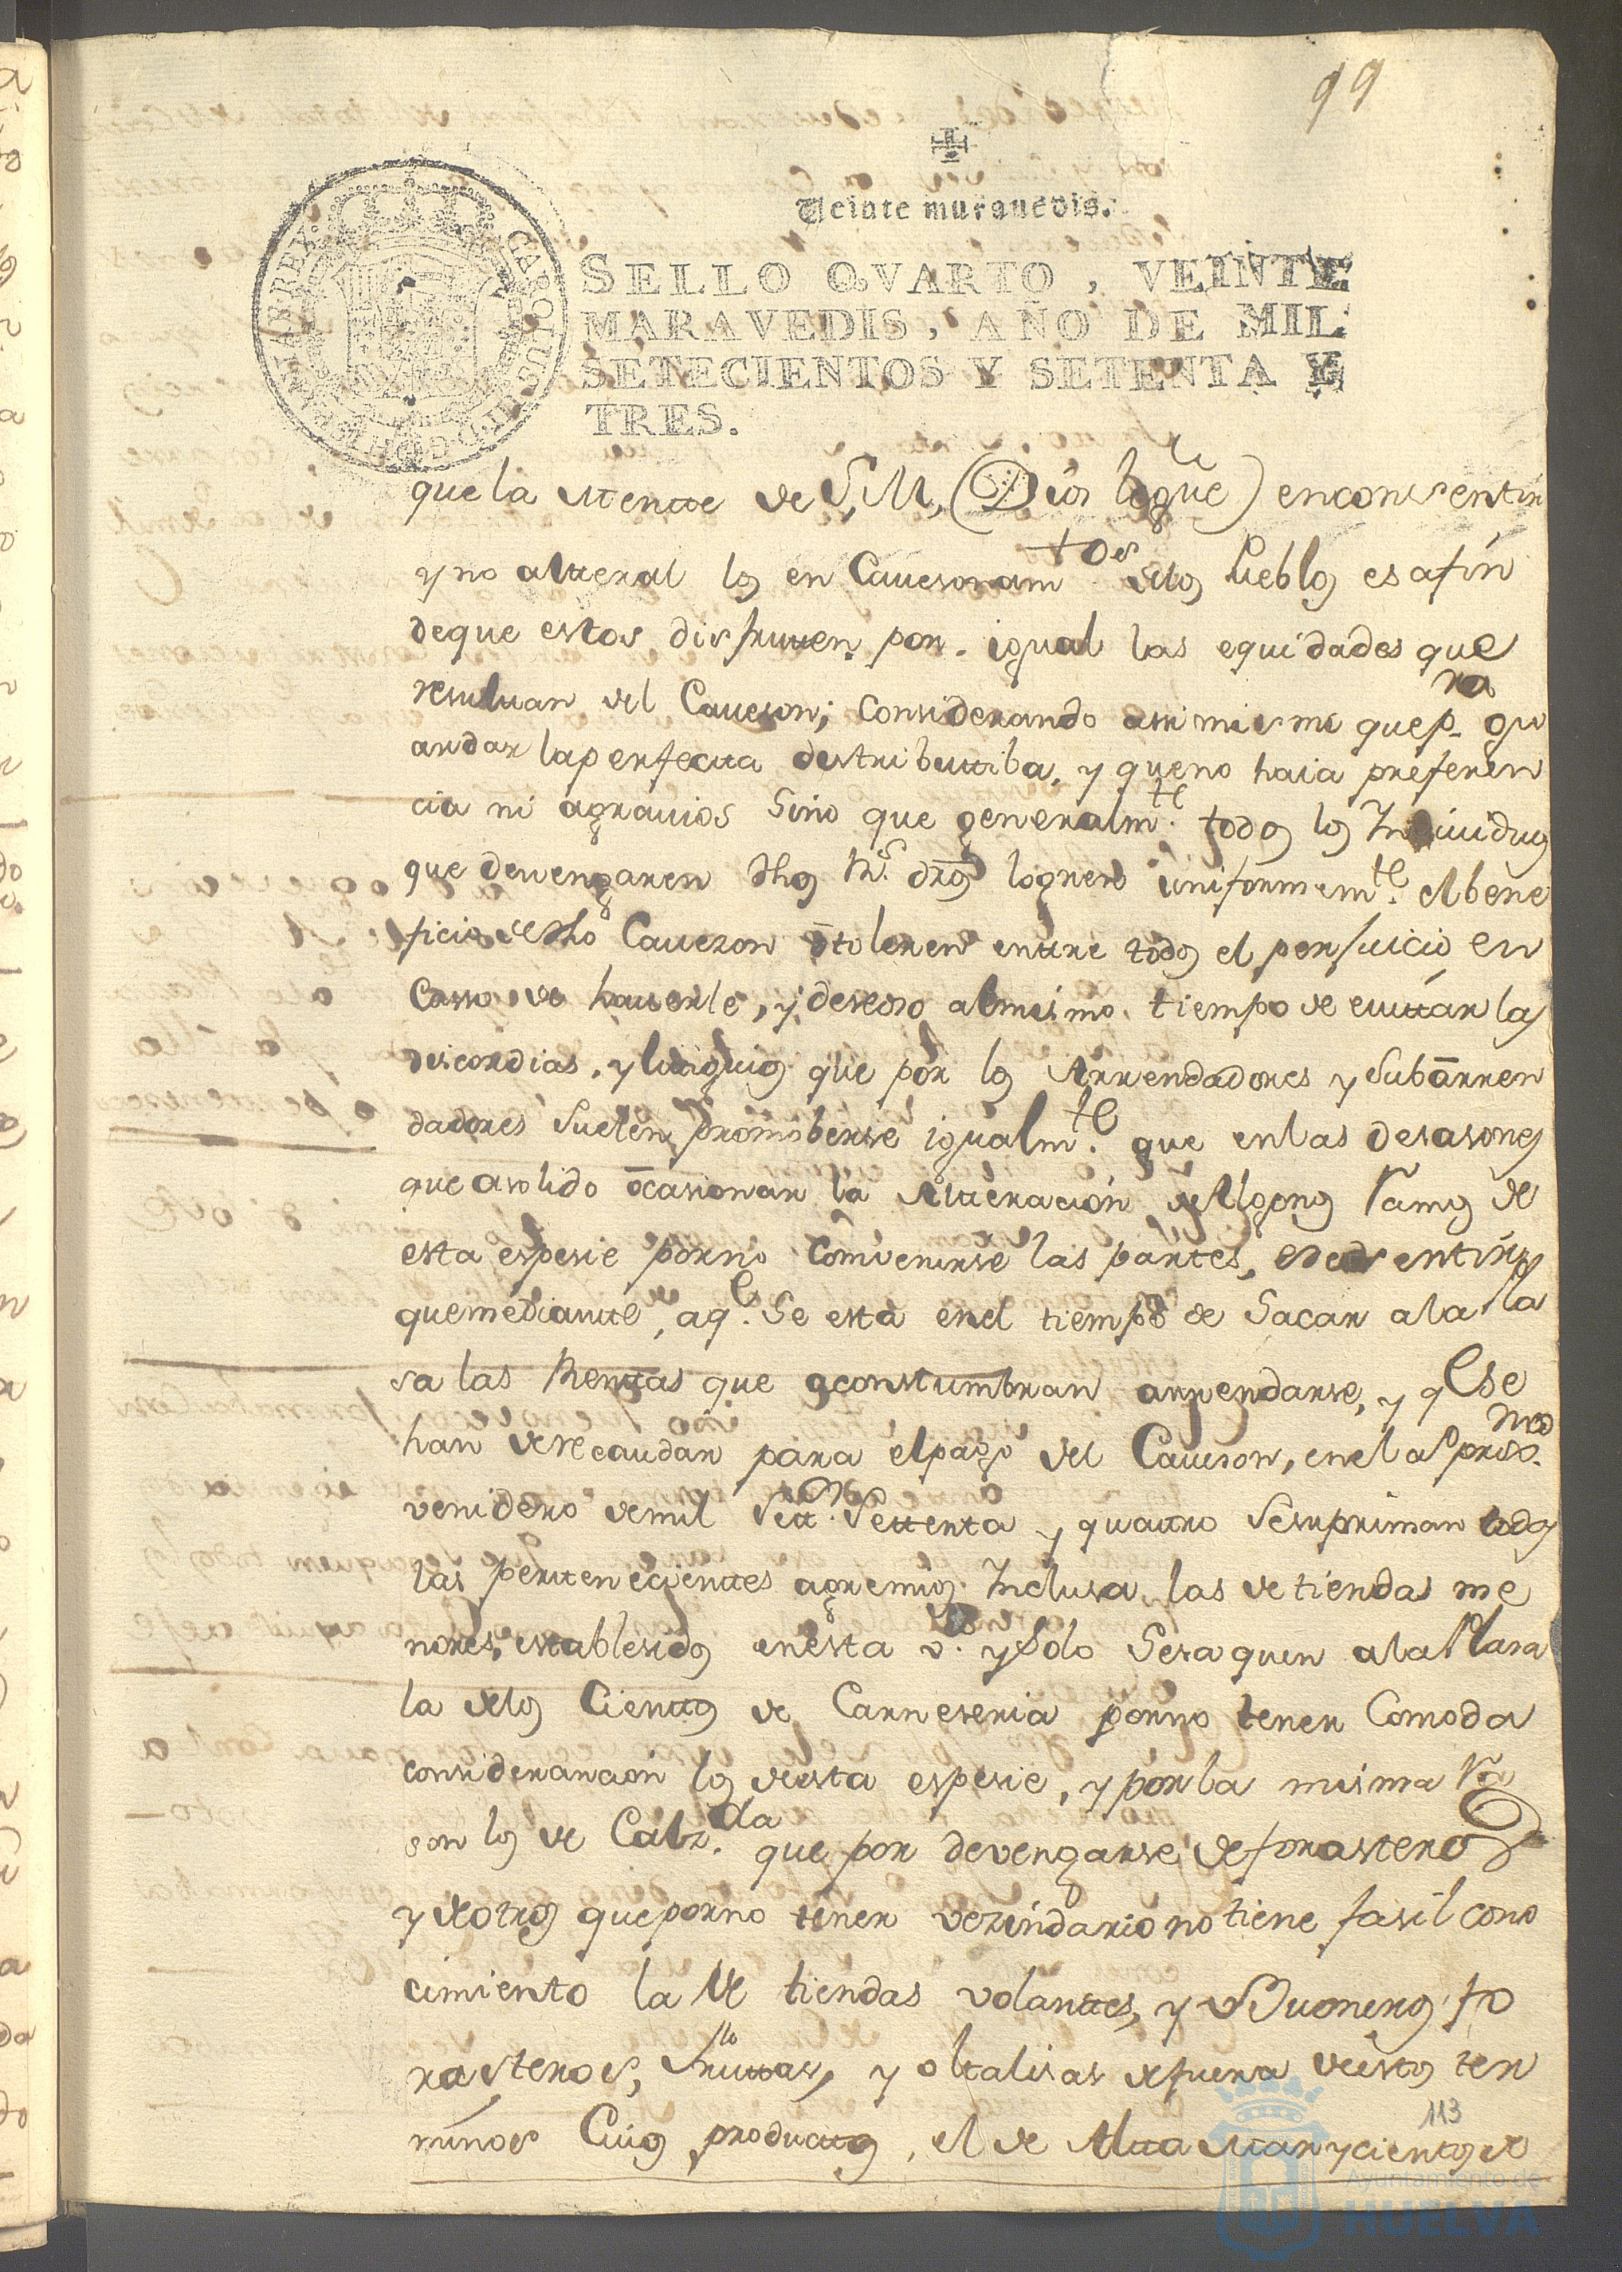 99
Veinte marauedis.
SELLO QVARTO, VEINTE
MARAVEDIS, AÑO DE MIL
SETECIENTOS Y SETENTA Y
TRES.
que la mente de S.M. (Dios legue) en consentir
y no alterar los en Cauesonamtos de los Pueblos es afin
de que estos disfruten por igual las equidades que
resultan del Caueson; Considerando assimismo que pra gu
ardar la perfecta destributtiba, y que no haia preferen
cia ni agrauios Sino que generalmte todos los Indiuiduos
que devengaren dhos Rs. dros logren uniformemte el bene
ficio de dho Cauezon o toleren entre todos el perjuicio en
Casso de hauerle, y deseoso al mismo tiempo de euitar las
discordias, y litigios que por los Arrendadores y Subarren
dadores Suelen promoberse igualmte que en las desasones
que a solido ocasionar la Alteracion de Algonos Ramos de
esta espesie por no comvenirse las partes, es de sentir
que mediante, aqe Se esta en el tiempo de Sacar a la Pla
sa las Rentas que acostumbran arrendarse, y qe se
han de recaudar para el pago del Caueson, en el aº proxmo
venidero de mil Settos Settenta y quatro Se supriman todas
las pertenecientes a gremios Inclusa las de tiendas me
nores, establesidos en esta va y Solo Se saquen a la Plasa
la de los Cientos de Carneseria por no tener Comoda
consideracion los de esta espesie, y por la misma Ra
son los de Calzda que por devengarse de forasteros
y de otros que por no tener vezindario no tiene fasil cono
cimiento la de tiendas volantes, y Buoneros fo
rasteros, fruttas, y ortalisas de fuera de estos ter
minos Cuios productos, el de Alta Mar y cientos de
113
Ayuntamiento de
HUELVA